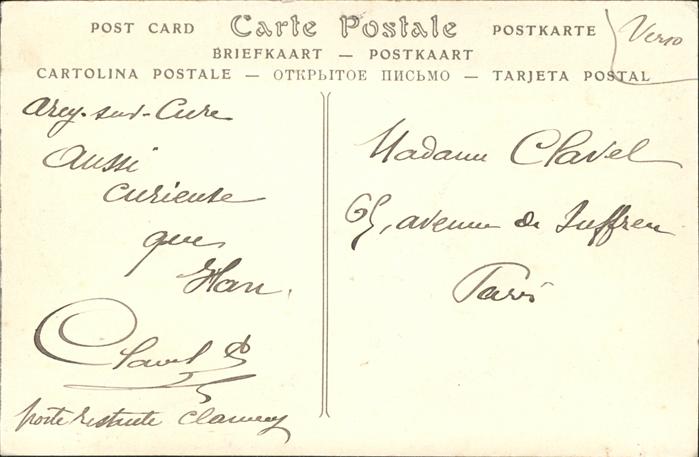 POST CARD Carte Postale POSTKARTE
Verso
BRIEFKAART — POSTKAART
CARTOLINA POSTALE — ОТКРЫТОЕ ПИСЬМО — TARJETA POSTAL
Arcy-sur-Cure
aussi
curieuse
que
Han.
Clavel
poste restante Clamecy
Madame Clavel
65, avenue de Suffren
Paris